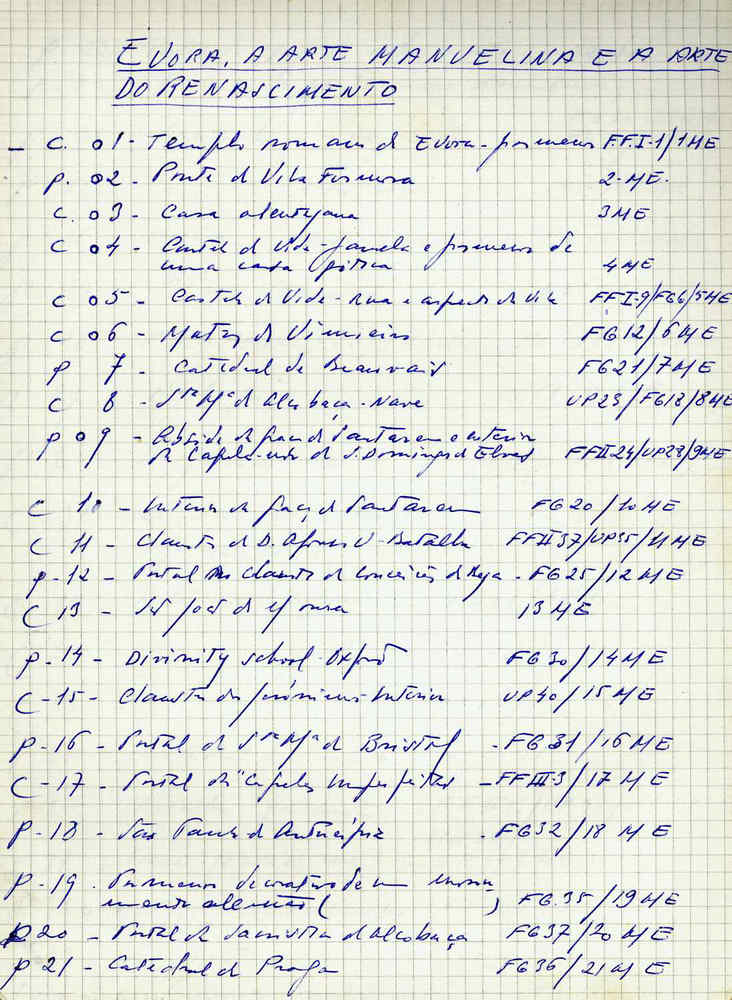 EVORA, A ARTE MANUELINA E A ARTE
DO RENASCIMENTO
- C. 01 - Templo romano d Evora - pormenor F.F.I-1/1ME
p. 02 - Ponte d Vila Formosa 2-ME.
C. 03 - Casa alentejana 3ME
C 04 - Castel d Vide - janela e pormenor de
uma casa gótica 4ME
C 05 - Castel d Vide - Rua e aspecto da Vila FFI-9/FG6/5ME
C 06 - Matriz d Vimieiro FG12/6ME
p 7 - Catedral de Beauvais FG21/7ME
C 8 - Sta Mª d Alcobaça - Nave UP23/FG18/8ME
p 09 - Abside da Graça d Santarem e interior
da Capela-mor d S. Domingos d Elvas FFII24/UP28/9ME
C 10 - Interior da Graça d Santarem FG20/10ME
C 11 - Claustro d D. Afonso V - Batalha FFII37/UP35/11ME
p-12 - Portal no Claustro da Conceição d Beja - FG25/12ME
C 13 - d 13ME
p-14 - Divinity school Oxford FG30/14ME
C-15 - Claustro dos Jerónimos Interior UP40/15ME
p-16 - Portal d Sta Mª d Bristol - FG31/16ME
C-17 - Portal das Capelas Imperfeitas - FFIII3/17ME
p-18 - São Paulo d Antuérpia - FG32/18ME
p-19 . Pormenor decorativo de um monu-
mento alemão ( ) FG.35/19ME
p 20 - Portal da Sacristia d Alcobaça FG37/20ME
p 21 - Catedral d Praga FG36/21ME